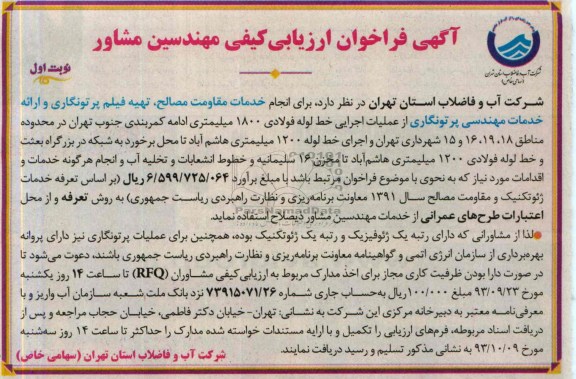 آگهی فراخوان ارزیابی کیفی مهندسین مشاور
شرکت آب و فاضلاب استان تهران
(سهامی خاص)
نوبت اول
شرکت آب و فاضلاب استان تهران در نظر دارد، برای انجام خدمات مقاومت مصالح، تهیه فیلم پرتونگاری و ارائه
خدمات مهندسی پرتونگاری از عملیات اجرایی خط لوله فولادی ۱۸۰۰ میلیمتری ادامه کمربندی جنوب تهران در محدوده
مناطق ۱۶،۱۹،۱۸ و ۱۵ شهرداری تهران و اجرای خط لوله ۱۲۰۰ میلیمتری هاشم آباد تا محل برخورد به شبکه در بزرگراه بعثت
و خط لوله فولادی ۱۲۰۰ میلیمتری هاشم‌آباد تا مخزن ۱۶ سلیمانیه و خطوط انشعابات و تخلیه آب و انجام هرگونه خدمات و
اقدامات مورد نیاز که به نحوی با موضوع فراخوان مرتبط باشد با مبلغ برآورد ۶/۵۹۹/۷۲۵/۰۶۴ ریال (بر اساس تعرفه خدمات
ژئوتکنیک و مقاومت مصالح سال ۱۳۹۱ معاونت برنامه‌ریزی و نظارت راهبردی ریاست جمهوری) به روش تعرفه و از محل
اعتبارات طرح‌های عمرانی از خدمات مهندسین مشاور ذیصلاح استفاده نماید.
لذا از مشاورانی که دارای رتبه یک ژئوفیزیک و رتبه یک ژئوتکنیک بوده، همچنین برای عملیات پرتونگاری نیز دارای پروانه
بهره‌برداری از سازمان انرژی اتمی و گواهینامه معاونت برنامه‌ریزی و نظارت راهبردی ریاست جمهوری باشند، دعوت می‌شود تا
در صورت دارا بودن ظرفیت کاری مجاز برای اخذ مدارک مربوط به ارزیابی کیفی مشاوران (RFQ) تا ساعت ۱۴ روز یکشنبه
مورخ ۹۳/۰۹/۲۳ مبلغ ۱۰۰/۰۰۰ ریال به‌حساب جاری شماره ۷۳۹۱۵۰۷۱/۲۶ نزد بانک ملت شعبه سازمان آب واریز و با
معرفی‌نامه معتبر به دبیرخانه مرکزی این شرکت به نشانی: تهران- خیابان دکتر فاطمی، خیابان حجاب مراجعه و پس از
دریافت اسناد مربوطه، فرم‌های ارزیابی را تکمیل و با ارایه مستندات خواسته شده مدارک را حداکثر تا ساعت ۱۴ روز سه‌شنبه
مورخ ۹۳/۱۰/۰۹ به نشانی مذکور تسلیم و رسید دریافت نمایند.
شرکت آب و فاضلاب استان تهران (سهامی خاص)